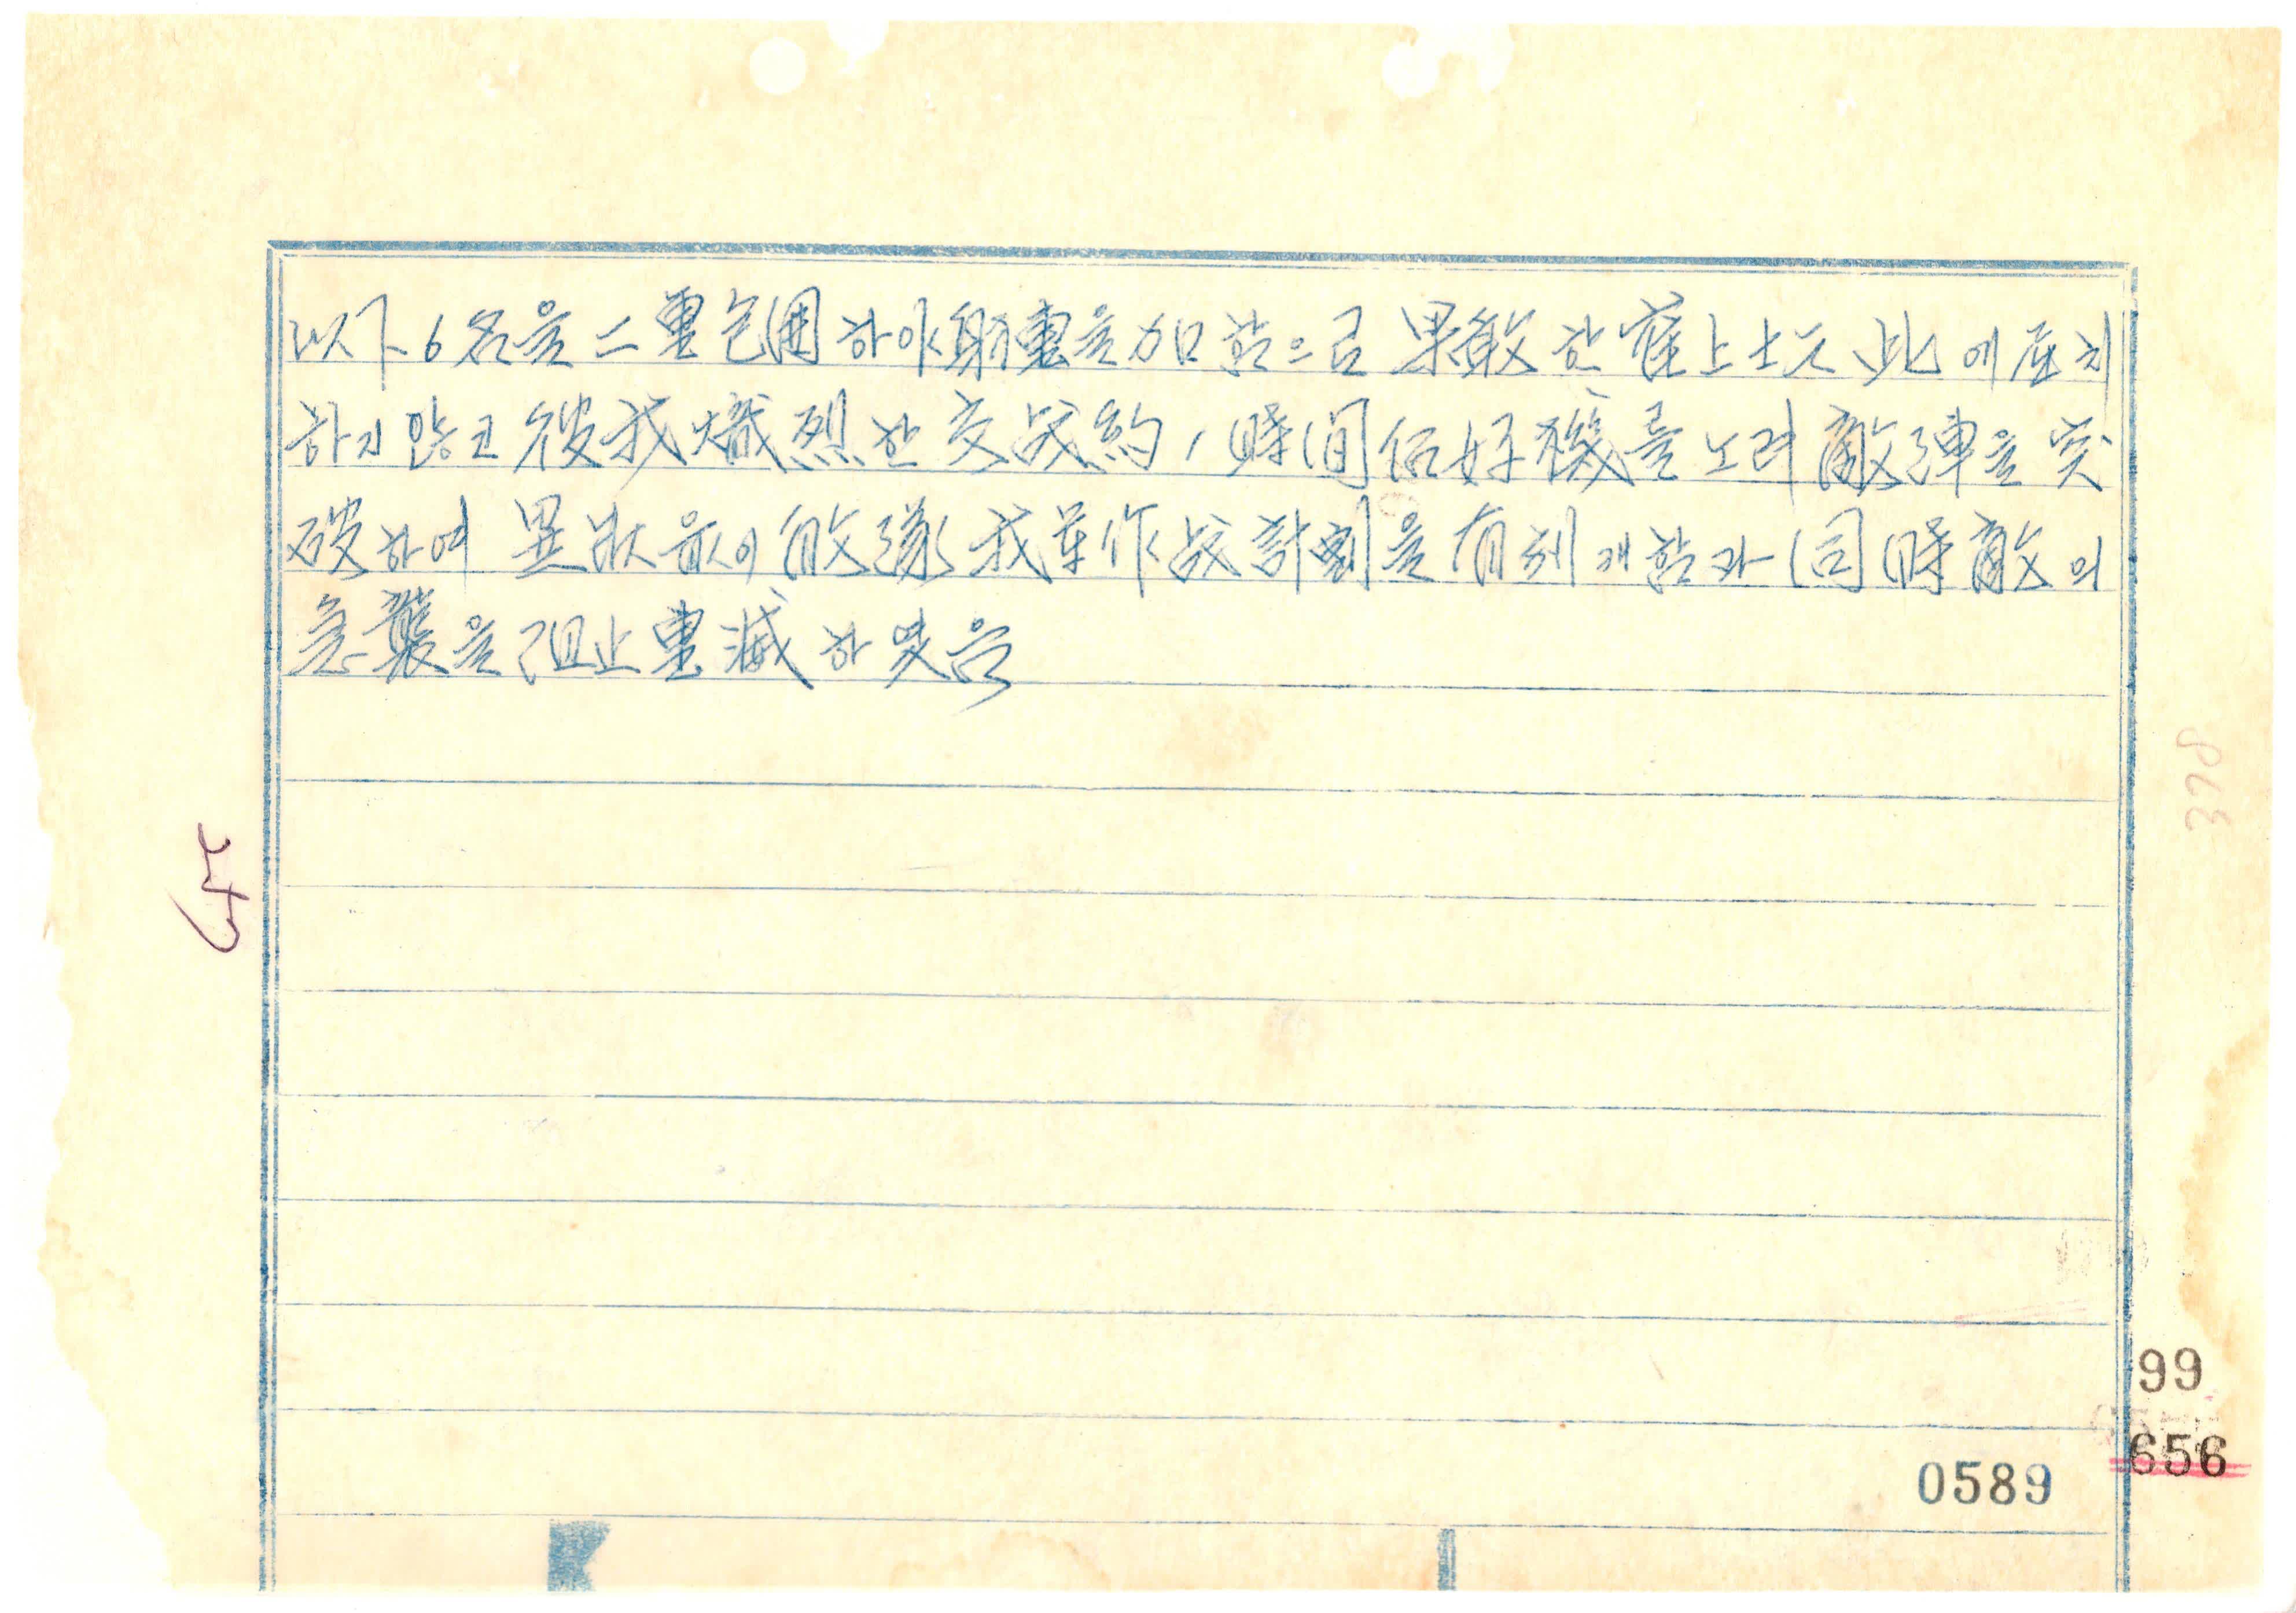 以下 6名을 二重包圍하야 射擊을 加함으로 果敢한 崔上士는 此에 屈치
하지 않고 彼我 熾烈한 交戰 約 1時間 後 好機를 노려 敵彈을 突
破하여 異狀 없이 敀隊 我軍 作戰計劃을 有利게 함과 同時 敵의
急襲을 阻止 擊滅하였음
378
99
656
0589